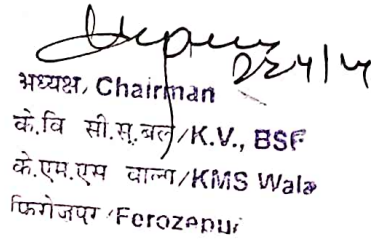 अध्यक्ष, Chairman
के.वि सी.सु.बल/K.V., BSF
के.एम.एस वाला/KMS Wala
फिरोजपुर/Ferozepur